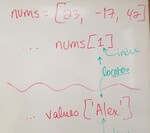 nums = [23, -17, 42]
.. nums[1]
index
location
.. values['Alex']